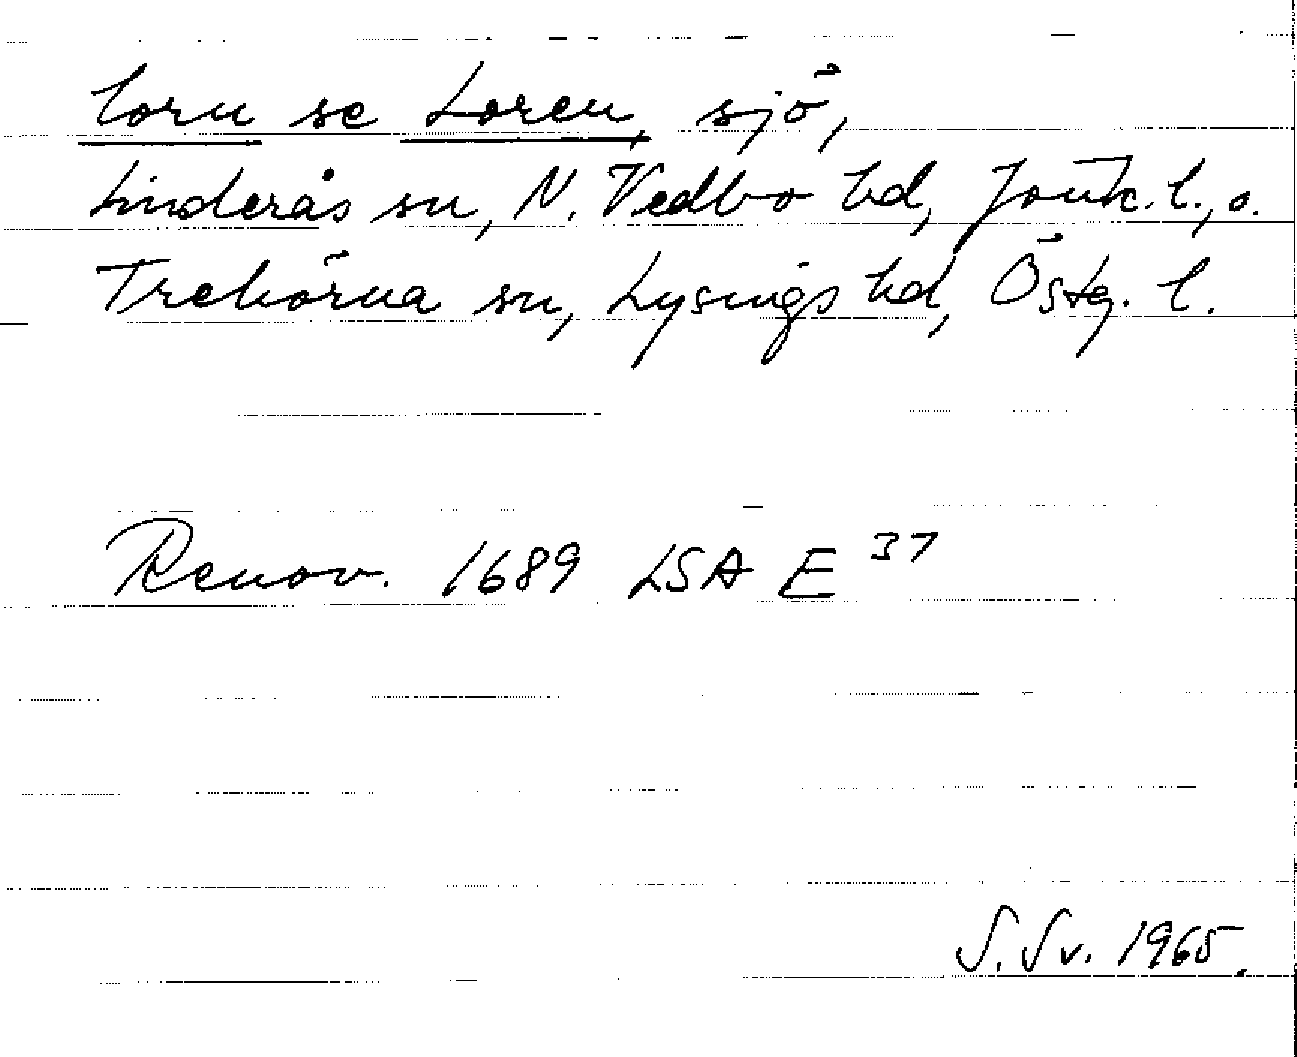 lorn se Loren, sjö,
Linderås sn, N. Vedbo hd, Jönk. l., o.
Trehörna sn, Lysings hd, Östg. l.
Renov. 1689 LSA E 37
S. Sv. 1965.